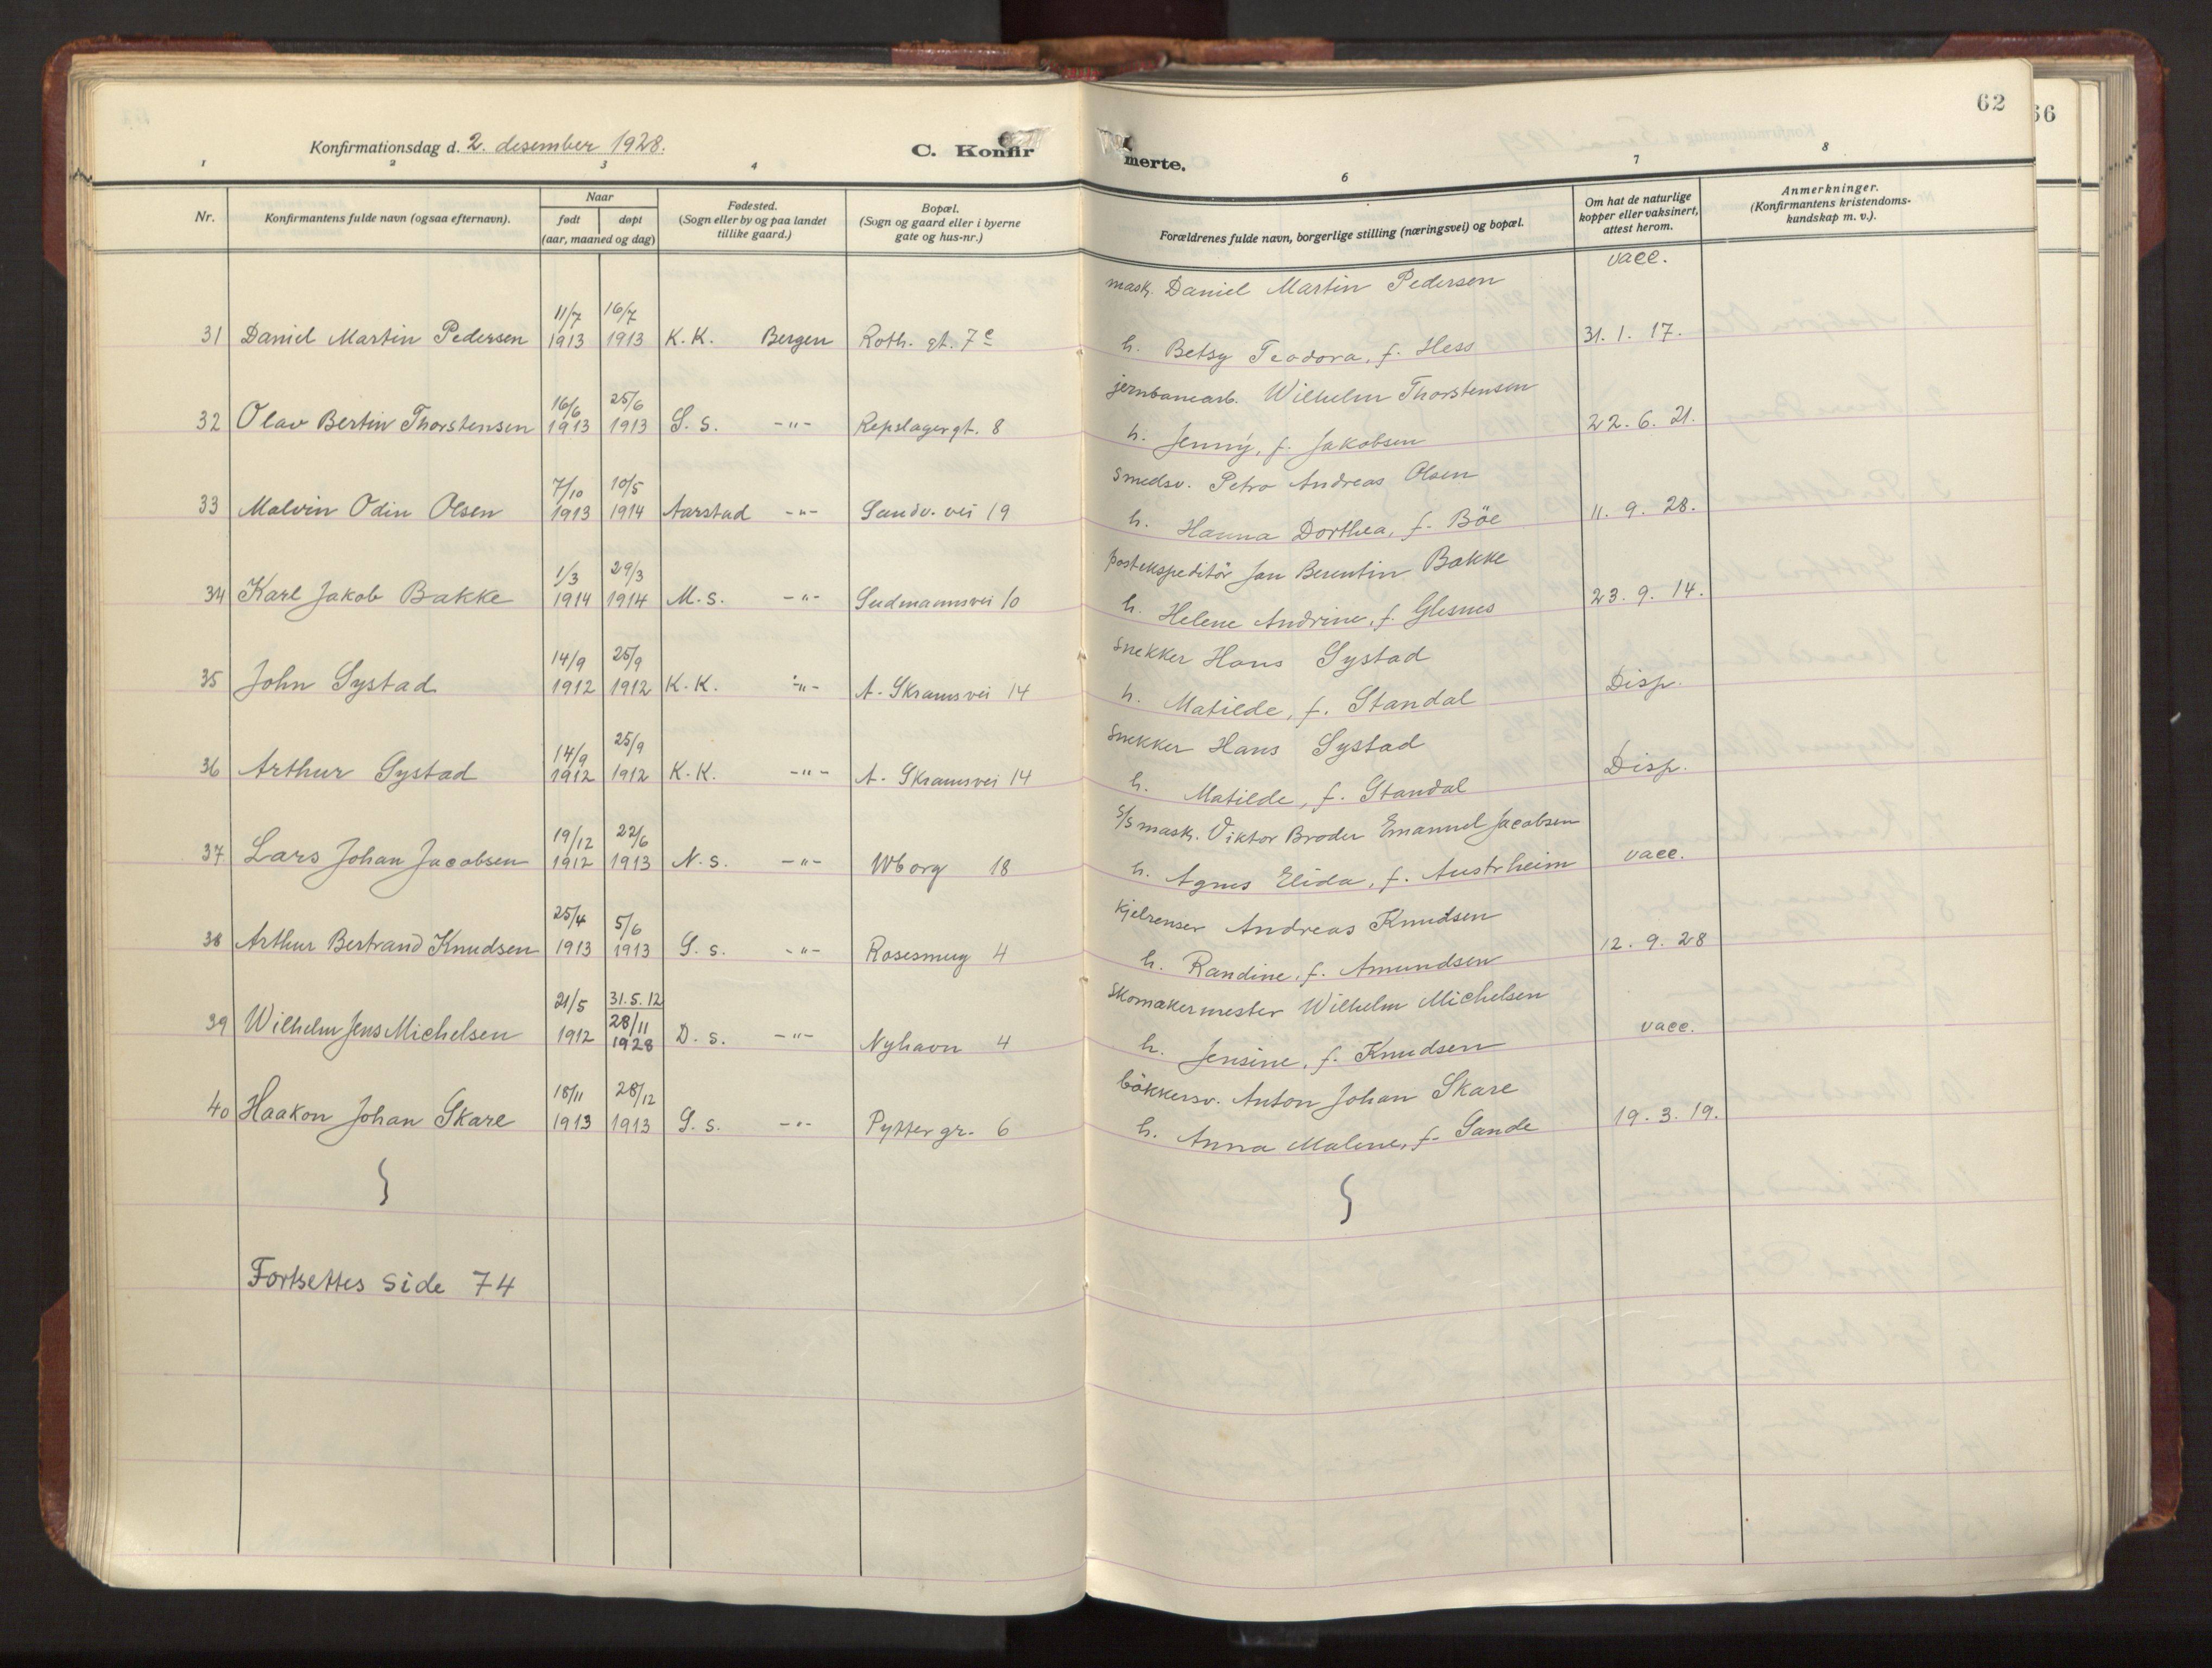 62
66
Konfirmationsdag d. 2. desember 1928.
C. Konfirmerte.
1 2 3 4 6 7 8
Nr.
Konfirmantens fulde navn (ogsaa efternavn).
Naar
født døpt
(aar, maaned og dag)
Fødested.
(Sogn eller by og paa landet
tillike gaard.)
Bopæl.
(Sogn og gaard eller i byerne
gate og hus-nr.)
Forældrenes fulde navn, borgerlige stilling (næringsvei) og bopæl.
Om hat de naturlige
kopper eller vaksinert,
attest herom.
Anmerkninger.
(Konfirmantens kristendoms-
kundskap m. v.).
11/7 16/7 mask. Daniel Martin Pedersen vacc.
31 Daniel Martin Pedersen 1913 1913 K. K. Bergen Roth. gt. 7c h. Betsy Teodora, f. Hess 31. 1. 17.
16/6 25/6 jernbanearb. Wilhelm Thorstensen
32 Olav Bertin Thorstensen 1913 1913 S. s. -"- Repslagergt. 8 h. Jenny, f. Jakobsen 22. 6. 21.
7/10 10/5 smedsv. Petro Andreas Olsen
33 Malvin Odin Olsen 1913 1914 Aarstad -"- Sandv. vei 19 h. Hanna Dorthea, f. Böe 11. 9. 28.
1/3 29/3 postekspeditör Jan Berentin Bakke
34 Karl Jakob Bakke 1914 1914 M. s. -"- Sudmannsvei 10 h. Helene Andrine, f. Glesnes 23. 9. 14.
14/9 25/9 snekker Hans Systad
35 John Systad 1912 1912 K. K. -"- A. Skramsvei 14 h. Matilde, f. Standal Disp.
14/9 25/9 snekker Hans Systad
36 Arthur Systad 1912 1912 K. K. -"- A. Skramsvei 14 h. Matilde, f. Standal Disp.
19/12 22/6 s/s mask. Viktor Broder Emanuel Jacobsen
37 Lars Johan Jacobsen 1912 1913 N. s. -"- Wborg 18 h. Agnes Elida, f. Austrheim vacc.
25/4 5/6 kjelrenser Andreas Knudsen
38 Arthur Bertrand Knudsen 1913 1913 S. s. -"- Rosesmug 4 h. Randine, f. Amundsen 12. 9. 28
21/5 31. 5. 12 skomakermester Wilhelm Michelsen
39 Wilhelm Jens Michelsen 1912 28/11 1928 D. s. -"- Nyhavn 4 h. Jensine, f. Knudsen vacc.
18/11 28/12 bökkersv. Anton Johan Skare
40 Haakon Johan Skare 1913 1913 S. s. -"- Pyttergr. 6 h. Anna Malene, f. Sande 19. 3. 19.
Fortsettes side 74